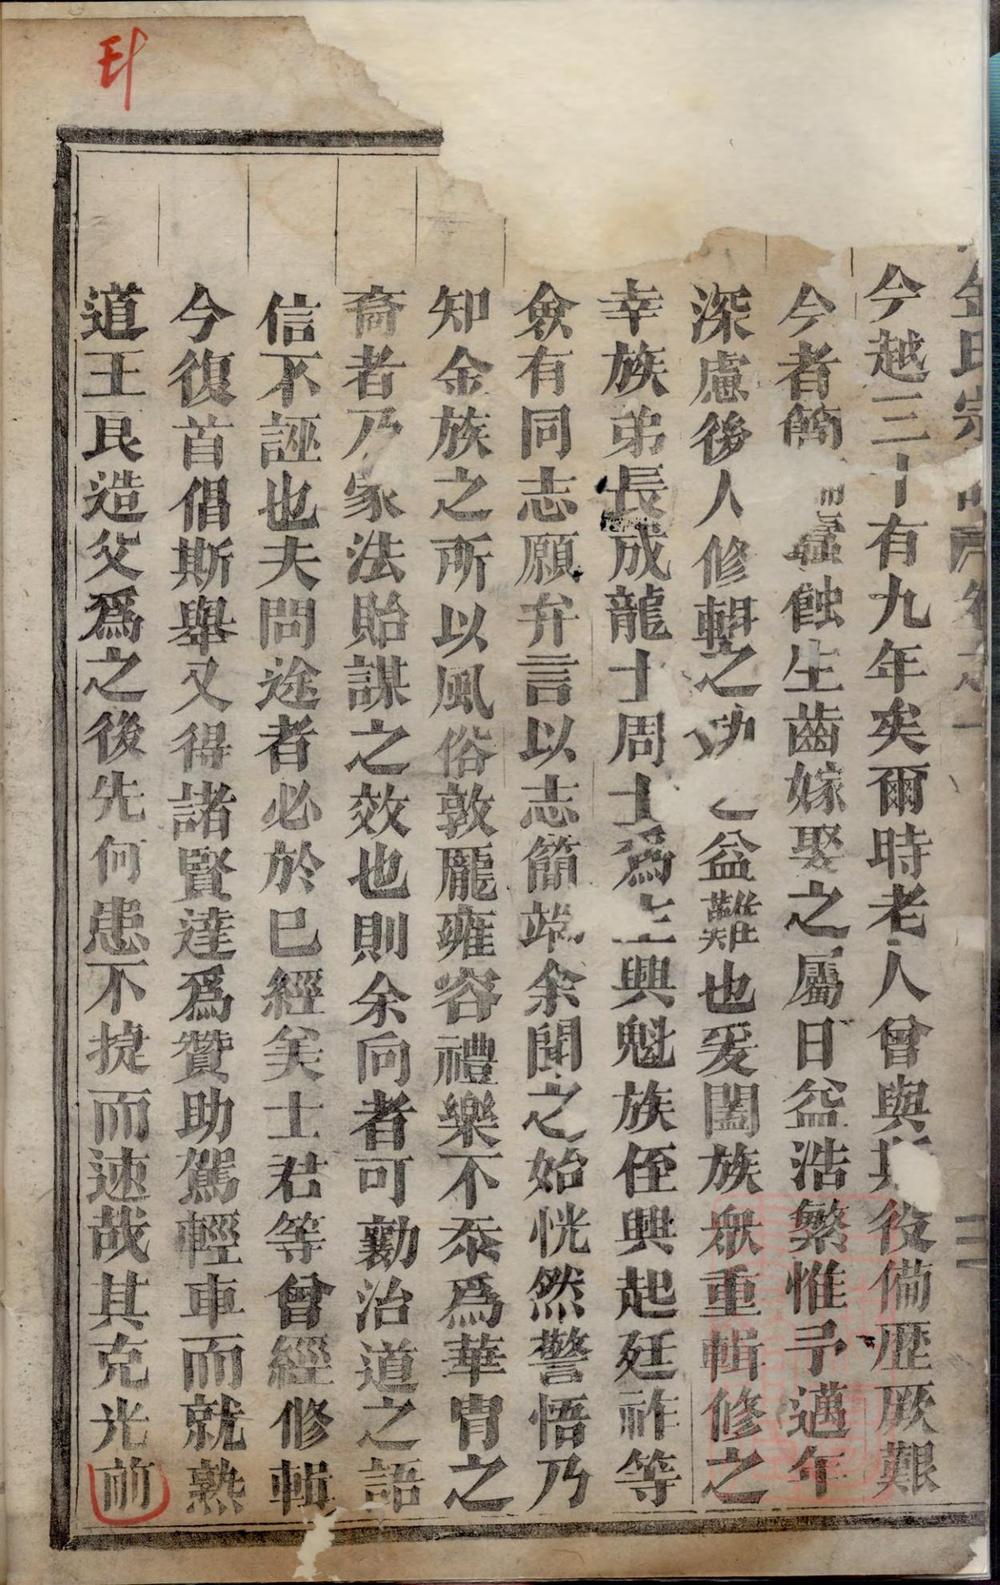 金氏宗譜 卷之一 三
今越三十有九年矣爾時老人曾與其役備歷厥艱
今者簡編蠹蝕生齒嫁娶之屬日益浩繁惟予邁年
深慮後人修輯之功之益難也爰闔族眾重輯修之
幸族弟長成龍士周士爲主興魁族侄興起廷祚等
僉有同志願弁言以志簡端余聞之始恍然警悟乃
知金族之所以風俗敦龐雍容禮樂不忝爲華冑之
裔者乃家法貽謀之效也則余向者可勷治道之語
信不誣也夫問途者必於已經矣士君等曾經修輯
今復首倡斯舉又得諸賢達爲贊助駕輕車而就熟
道王良造父爲之後先何患不捷而速哉其克光前